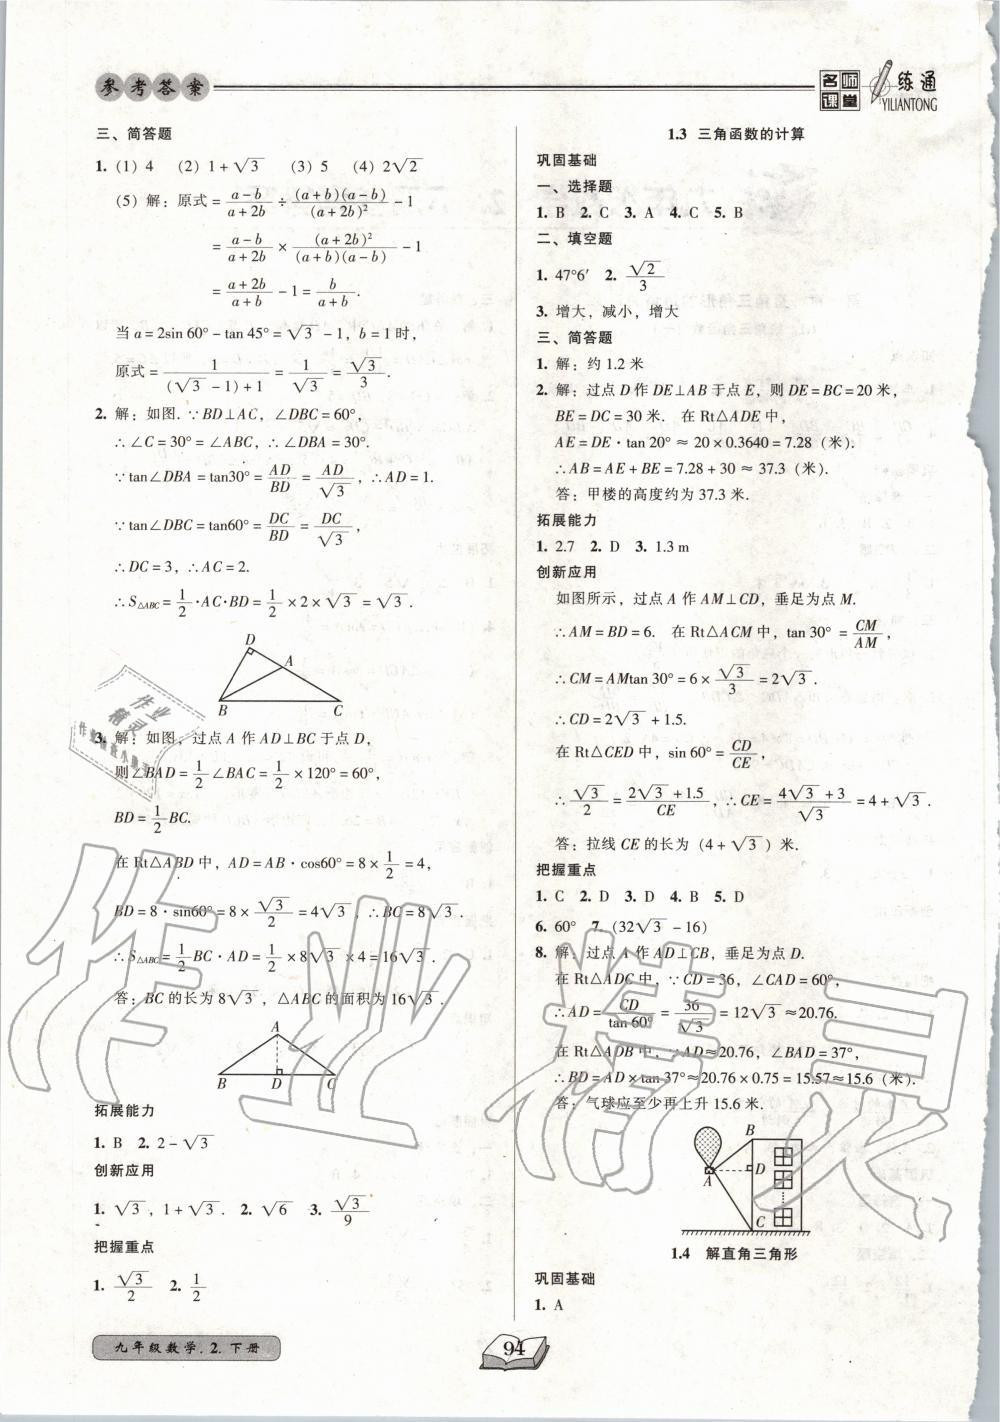 参考答案
名师课堂 一练通
YILIANTONG
三、简答题
1. (1) 4 (2) 1+√3 (3) 5 (4) 2√2
(5) 解：原式=(a-b)/(a+2b)÷((a+b)(a-b))/(a+2b)²-1
=(a-b)/(a+2b)×(a+2b)²/((a+b)(a-b))-1
=(a+2b)/(a+b)-1=b/(a+b).
当a=2sin 60°-tan 45°=√3-1，b=1时，
原式=1/((√3-1)+1)=1/√3=√3/3.
2. 解：如图.∵BD⊥AC，∠DBC=60°，
∴∠C=30°=∠ABC，∴∠DBA=30°.
∵tan∠DBA=tan30°=AD/BD=AD/√3，∴AD=1.
∵tan∠DBC=tan60°=DC/BD=DC/√3，
∴DC=3，∴AC=2.
∴S△ABC=1/2·AC·BD=1/2×2×√3=√3.
D
A
B C
3. 解：如图，过点A作AD⊥BC于点D，
则∠BAD=1/2∠BAC=1/2×120°=60°，
BD=1/2BC.
在Rt△ABD中，AD=AB·cos60°=8×1/2=4，
BD=8·sin60°=8×√3/2=4√3，∴BC=8√3.
∴S△ABC=1/2BC·AD=1/2×8√3×4=16√3.
答：BC的长为8√3，△ABC的面积为16√3.
A
B D C
拓展能力
1. B 2. 2-√3
创新应用
1. √3，1+√3. 2. √6 3. √3/9
把握重点
1. √3/2 2. 1/2
1.3 三角函数的计算
巩固基础
一、选择题
1. B 2. C 3. A 4. C 5. B
二、填空题
1. 47°6′ 2. √2/3
3. 增大，减小，增大
三、简答题
1. 解：约1.2米
2. 解：过点D作DE⊥AB于点E，则DE=BC=20米，
BE=DC=30米. 在Rt△ADE中，
AE=DE·tan 20°≈20×0.3640=7.28（米）.
∴AB=AE+BE=7.28+30≈37.3（米）.
答：甲楼的高度约为37.3米.
拓展能力
1. 2.7 2. D 3. 1.3 m
创新应用
如图所示，过点A作AM⊥CD，垂足为点M.
∴AM=BD=6. 在Rt△ACM中，tan 30°=CM/AM，
∴CM=AMtan 30°=6×√3/3=2√3.
∴CD=2√3+1.5.
在Rt△CED中，sin 60°=CD/CE，
∴√3/2=(2√3+1.5)/CE，∴CE=(4√3+3)/√3=4+√3.
答：拉线CE的长为（4+√3）米.
把握重点
1. C 2. D 3. D 4. B 5. D
6. 60° 7. (32√3-16)
8. 解：过点A作AD⊥CB，垂足为点D.
在Rt△ADC中，∵CD=36，∠CAD=60°，
∴AD=CD/tan 60°=36/√3=12√3≈20.76.
在Rt△ADB中，∵AD≈20.76，∠BAD=37°，
∴BD=AD×tan 37°≈20.76×0.75=15.57≈15.6（米）.
答：气球应至少再上升15.6米.
B
A D
C
1.4 解直角三角形
巩固基础
1. A
九年级数学.2.下册
94
作业精灵